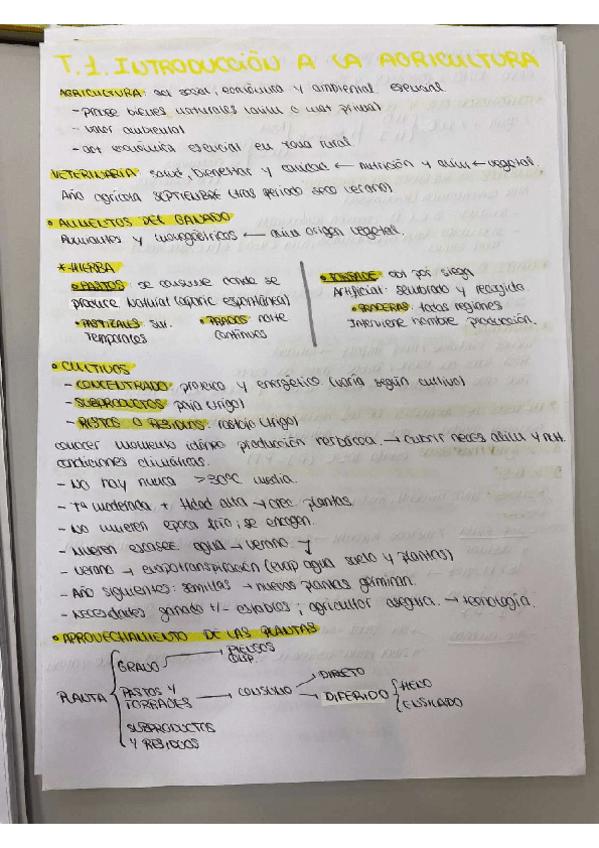 T.1. INTRODUCCIÓN A LA AGRICULTURA
AGRICULTURA: act social, económica y ambiental esencial
- provee bienes naturales (alim o mat prima)
- valor ambiental
- act económica esencial en zona rural
VETERINARIA: salud, bienestar y calidad ← nutrición y alim ← vegetal.
Año agrícola SEPTIEMBRE (tras periodo seco verano)
• ALIMENTOS DEL GANADO
Rumiantes y monogástricos ← alim origen vegetal.
* HIERBA
• PASTOS: se consume donde se
produce. Natural (aparic espontánea)
• PASTIZALES sur.
Temporales
• PRADOS norte
continuos
• FORRAJE: obt por siega
Artificial: sembrado y recogida
• PRADERAS: todas regiones
Interviene hombre producción.
• CULTIVOS
- CONCENTRADO: proteico y energético (varía según cultivo)
- SUBPRODUCTOS: paja (trigo)
- RESTOS O RESIDUOS: rastrojo (trigo)
conocer momento idóneo producción herbácea. → cubrir neces alim y nut.
condiciones climáticas.
- No hay nunca >30ºC media.
- Tª moderada + Hdad alta → crec. plantas.
- No mueren época frío, se encogen.
- Mueren escasez agua → verano
- Verano → evapotranspiración (evap agua suelo y plantas)
- Año siguientes: semillas → nuevas plantas germinan.
- Necesidades ganado +/- estables; agricultor asegura. → tecnología.
• APROVECHAMIENTO DE LAS PLANTAS
PLANTA
GRANO → PIENSOS
COMP.
PASTOS Y
FORRAJES → CONSUMO
DIRECTO
DIFERIDO
HENO
ENSILADO
SUBPRODUCTOS
Y RESIDUOS